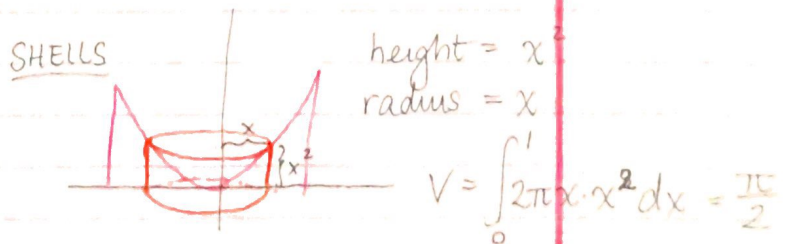 SHELLS
height = x²
radius = x
x
x²
V = ∫₀¹ 2πx·x² dx = π/2